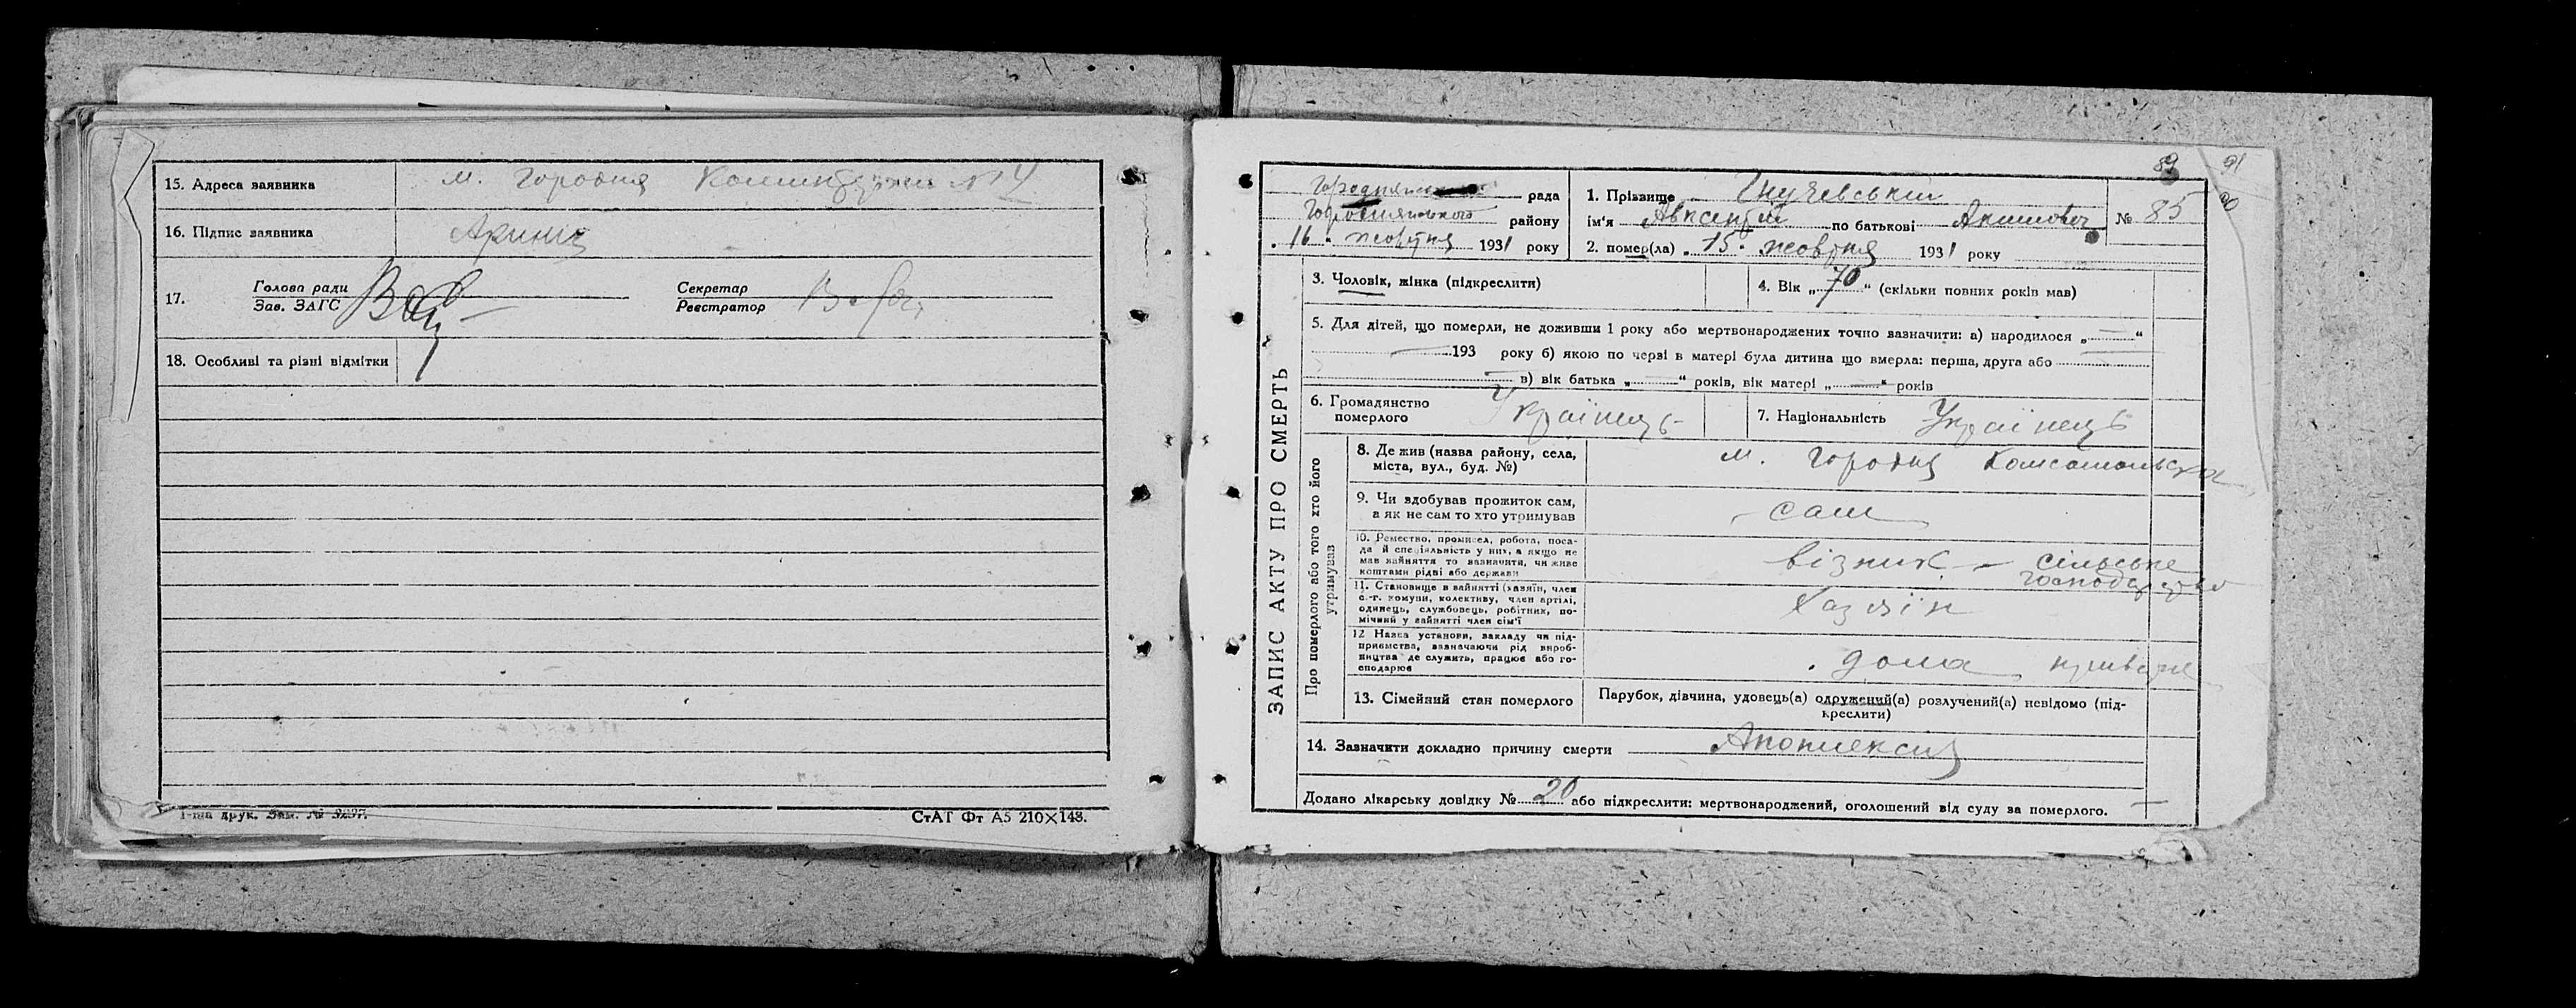 15. Адреса заявника м. Городня Комінтерна №14
16. Підпис заявника
17. Голова ради
Зав. ЗАГС
Секретар
Реєстратор
18. Особливі та різні відмітки
1-ша друк. Зам. № 3237.
СтАТ Фт А5 210×148.
89 91
90
ЗАПИС АКТУ ПРО СМЕРТЬ
Городнянська рада
Городнянського району
„16“ жовтня 1931 року
1. Прізвище Гнучевський
ім'я Авксентій по батькові Акимович
№ 85
2. помер(ла) „15“ жовтня 1931 року
3. Чоловік, жінка (підкреслити)
4. Вік „70“ (скільки повних років мав)
5. Для дітей, що померли, не доживши 1 року або мертвонароджених точно зазначити: а) народилося „—“
— 193 року б) якою по черзі в матері була дитина що вмерла: перша, друга або
— в) вік батька „—“ років, вік матері „—“ років
6. Громадянство
померлого Українець
7. Національність Українець
Про померлого або того хто його
утримував
8. Де жив (назва району, села,
міста, вул., буд. №) м. Городня Комсомольська
9. Чи здобував прожиток сам,
а як не сам то хто утримував сам
10. Ремество, промисел, робота, поса-
да й спеціяльність у них, а якщо не
мав зайняття то зазначити, чи живе
коштами рідні або держави
візник — сільське
господарство
11. Становище в зайнятті (хазяїн, член
с.-г. комуни, колективу, член артілі,
одинець, службовець, робітник, по-
мічний у зайнятті член сім'ї
Хазяїн
12 Назва установи, закладу чи під-
приємства, зазначаючи рід вироб-
ництва де служить, працює або го-
сподарює
дома
13. Сімейний стан померлого
Парубок, дівчина, удовець(а) одружений(а) розлучений(а) невідомо (під-
креслити)
14. Зазначити докладно причину смерти Апоплексия
Додано лікарську довідку № 20 або підкреслити: мертвонароджений, оголошений від суду за померлого. —